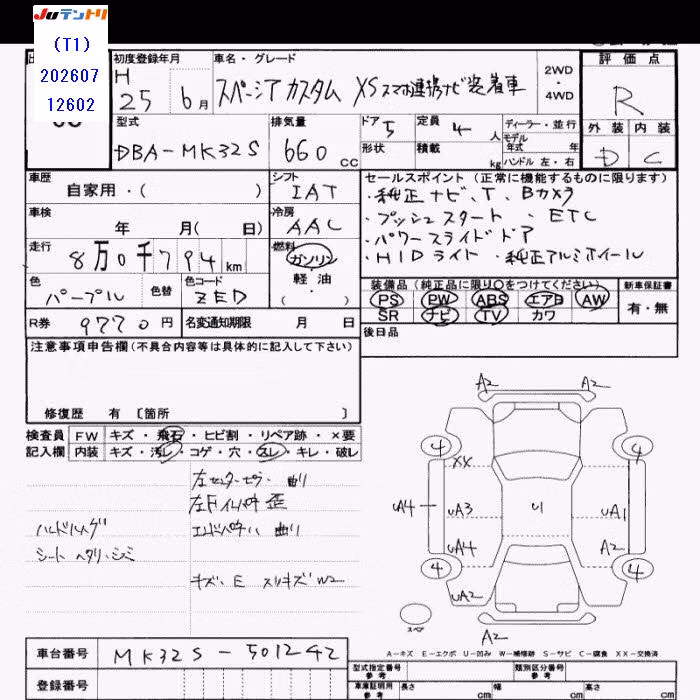 JUテントリ
(T1)
202607
12602
初度登録年月
H 25 6月
車名・グレード
スペーシアカスタム XSスマホ連携ナビ装着車
2WD
・
4WD
評価点
R
外装 内装
D C
型式
DBA-MK32S
排気量
660 cc
ドア 5
形状
定員 4 人
積載 kg
ディーラー・並行
モデル
年式 年
ハンドル 左・右
車歴
自家用・( )
シフト
IAT
車検
年 月( 日)
冷房
AAC
走行
8万0千794km
燃料
ガソリン
軽油
・( )
色
パープル
色替
色コード
ZED
R券 9770円
名変通知期限 月 日
セールスポイント(正常に機能するものに限ります)
・純正ナビ、T、Bカメラ
・プッシュスタート ・ETC
・パワースライドドア
・HIDライト ・純正アルミホイール
装備品(純正品に限り○をつけてください)
PS PW ABS エアB AW
SR ナビ TV カワ
新車保証書
有・無
後日品
注意事項申告欄(不具合内容等は具体的に記入して下さい)
修復歴 有 〔箇所 〕
検査員 FW キズ・飛石・ヒビ割・リペア跡・×要
記入欄 内装 キズ・汚レ・コゲ・穴・スレ・キレ・破レ
左センターピラー 曲り
左Fインパネ 歪
ハンドルハゲ エンドパネル 曲り
シート ヘタリ・シミ
キズ、E スリキズ W2
A2 A2
4 4
XX
UA4 UA3 U1 UA1
UA4 A2
4 4
UA2
スペア
A2
A-キズ E-エクボ U-凹み W-補修跡 S-サビ C-腐食 XX-交換済
車台番号 MK32S-501242
登録番号
型式指定番号
参考
類別区分番号
参考
車庫証明用
参考
長さ cm 幅 cm 高さ cm